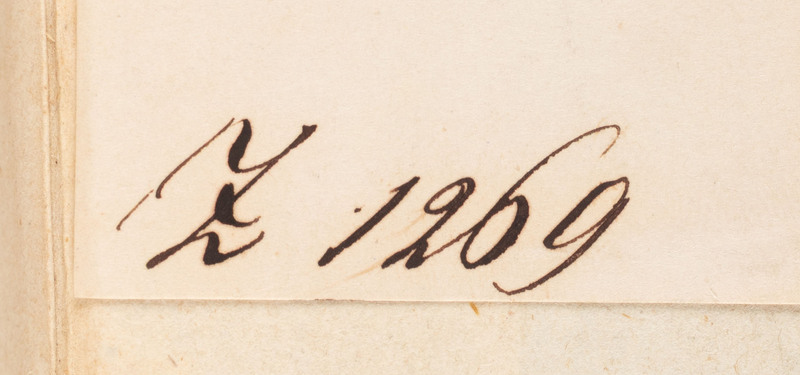 Z 1269